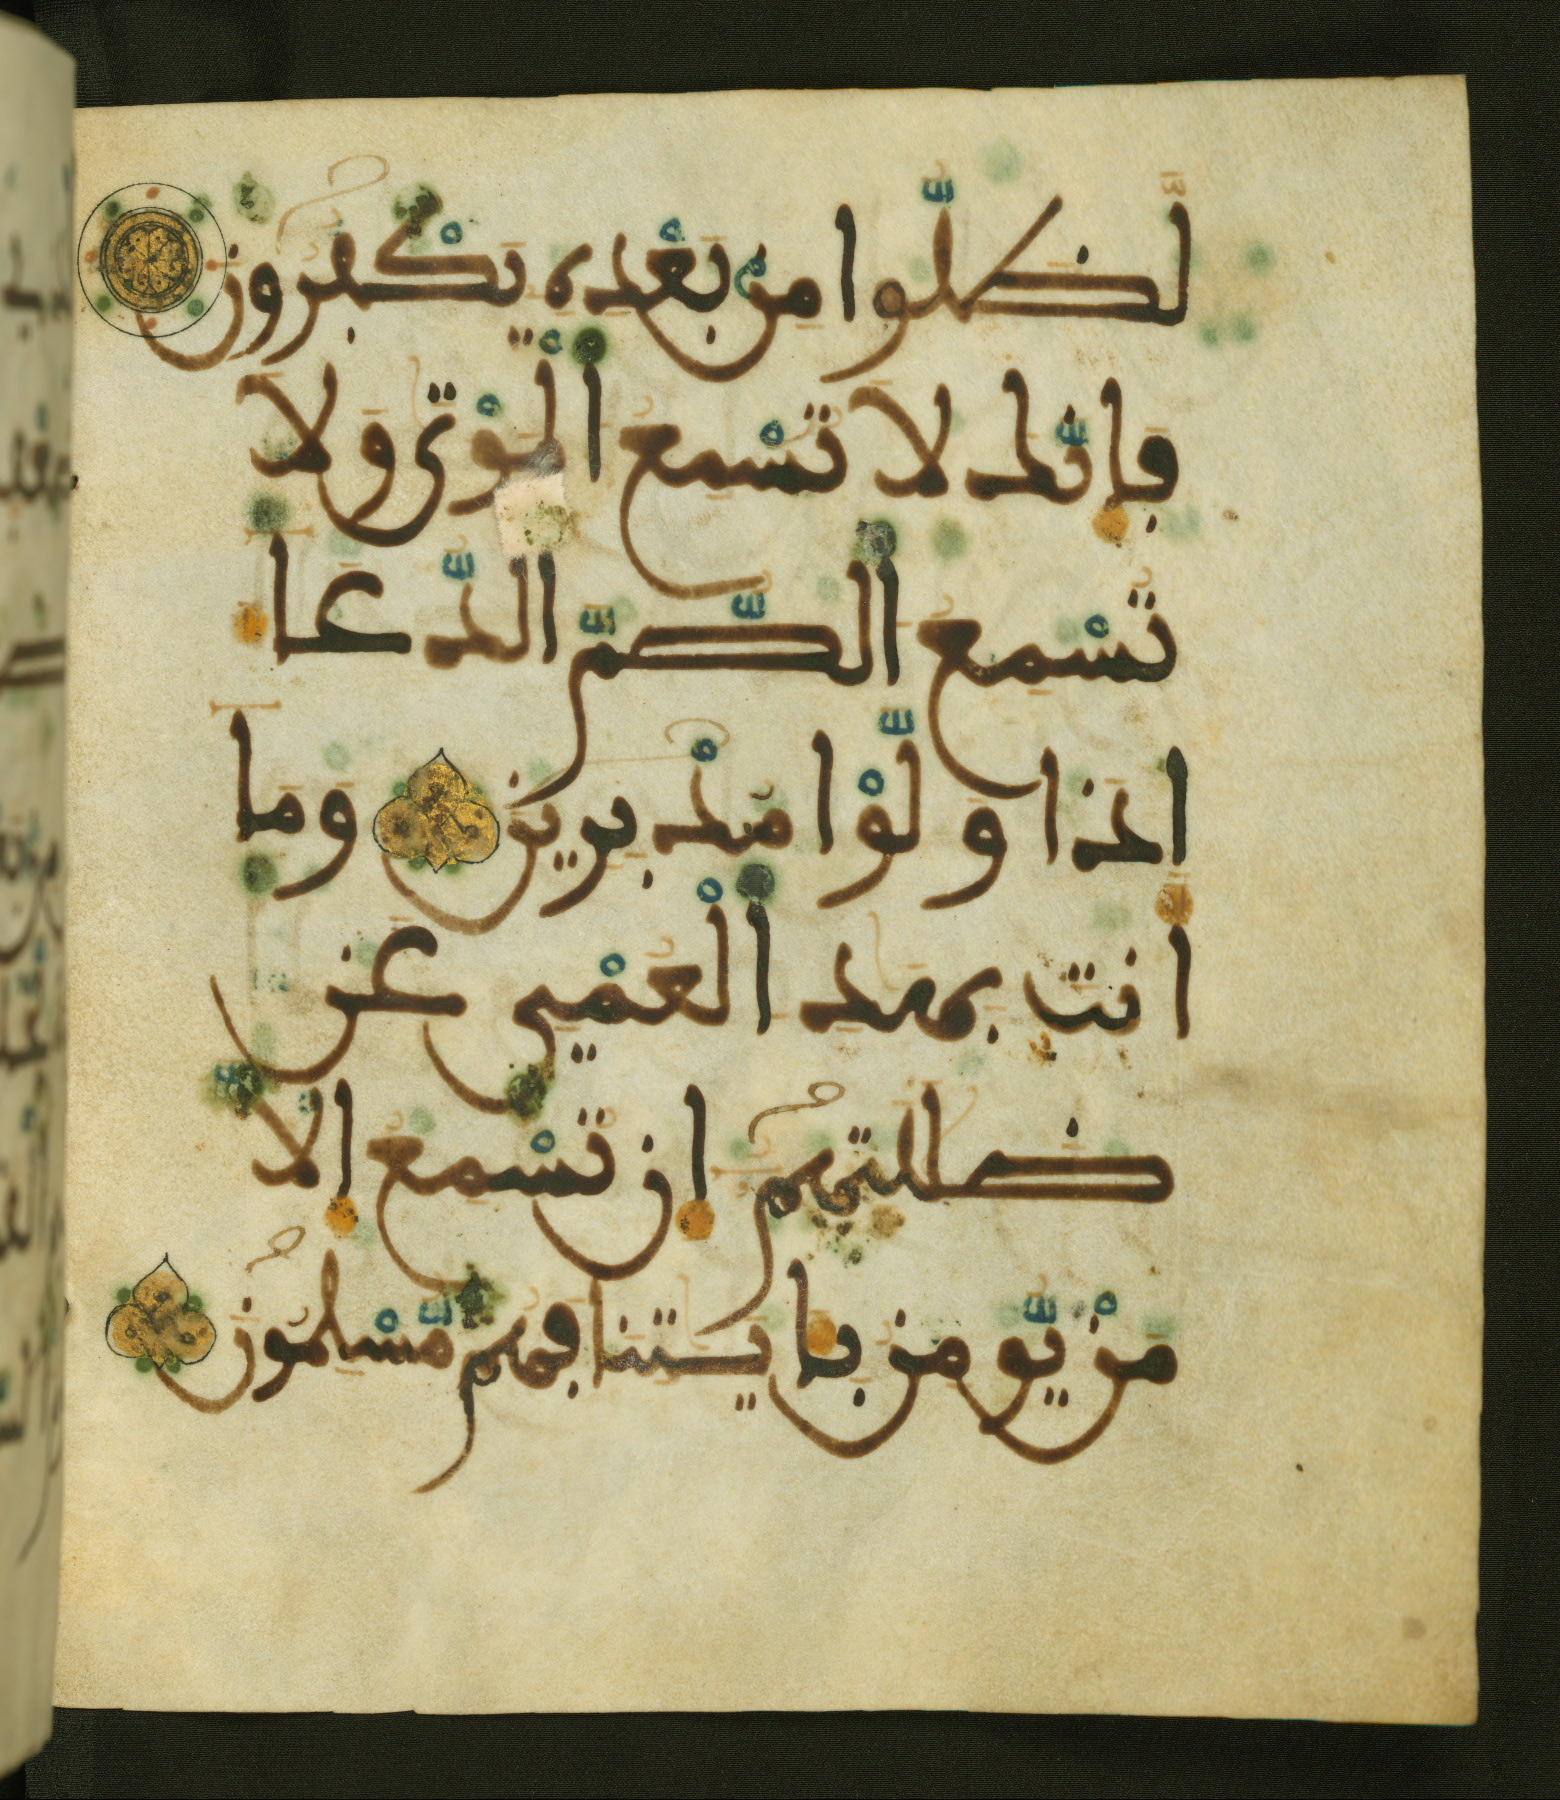 لظلوا من بعده يكفرون
فإنك لا تسمع الموتى ولا
تسمع الصم الدعا
اذا ولوا مدبرين وما
انت بهد العمي عن
ضللتهم ان تسمع الا
من يومن بايتنا فهم مسلمون